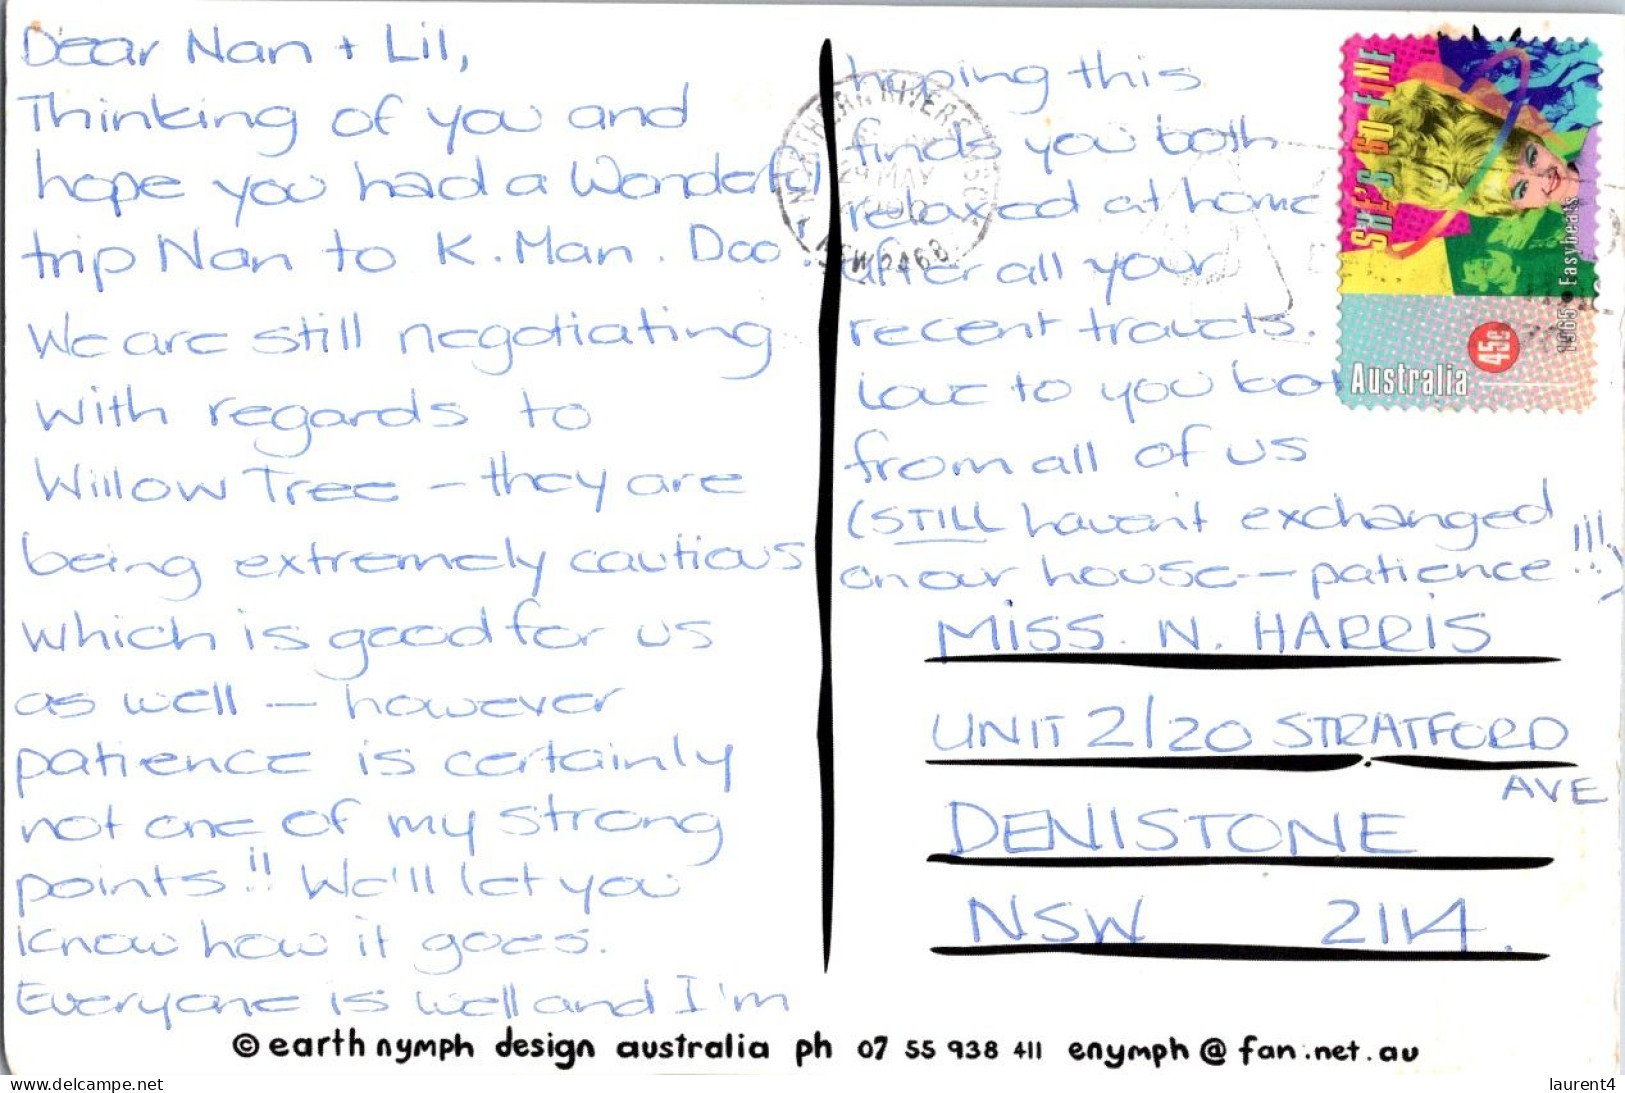 Dear Nan + Lil,
Thinking of you and
hope you had a Wonderful
trip Nan to K. Man. Doo!
We are still negotiating
With regards to
Willow Tree - they are
being extremely cautious
which is good for us
as well - however
patience is certainly
not one of my strong
points!! We'll let you
know how it goes.
Everyone is well and I'm
hoping this
finds you both
relaxed at home
after all your
recent travels.
Love to you bot
from all of us
(STILL haven't exchanged
on our house - patience!!!)
MISS. N. HARRIS
UNIT 2/20 STRATFORD
AVE
DENISTONE
NSW 2114.
SHE'S SO FINE
1965 • Easybeats
45c
Australia
NORTHERN RIVERS
MAY
NSW 2468
© earth nymph design australia ph 07 55 938 411 enymph@fan.net.au
www.delcampe.net
laurent4